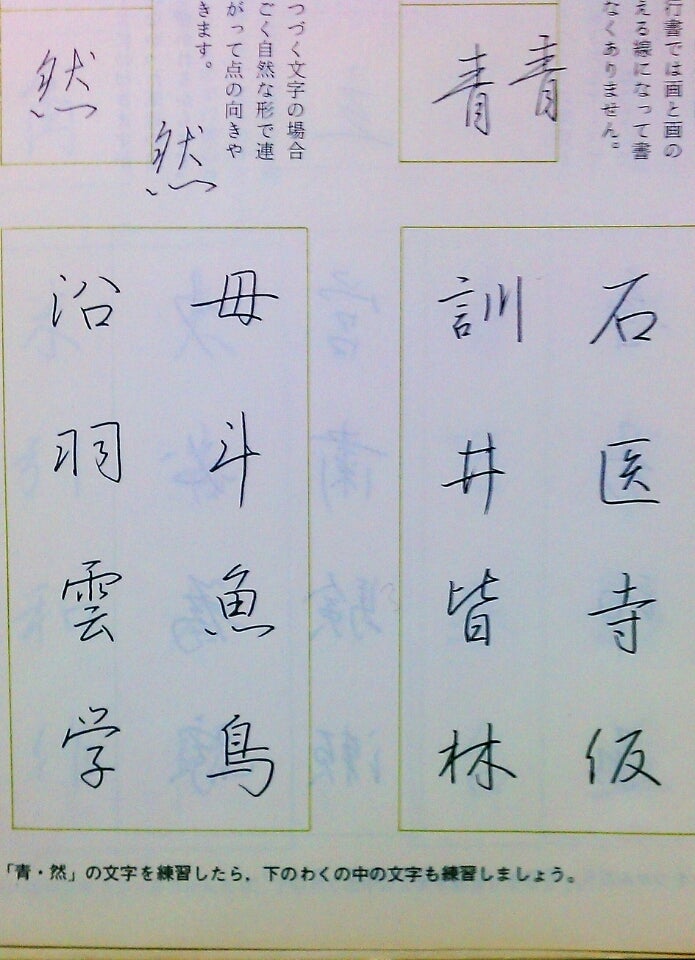 行書では画と画の
える線になって書
なくありません。
青
青
つづく文字の場合
ごく自然な形で連
がって点の向きや
きます。
然
然
石
医
寺
仮
訓
井
皆
林
母
斗
魚
鳥
沿
羽
雲
学
「青・然」の文字を練習したら，下のわくの中の文字も練習しましょう。